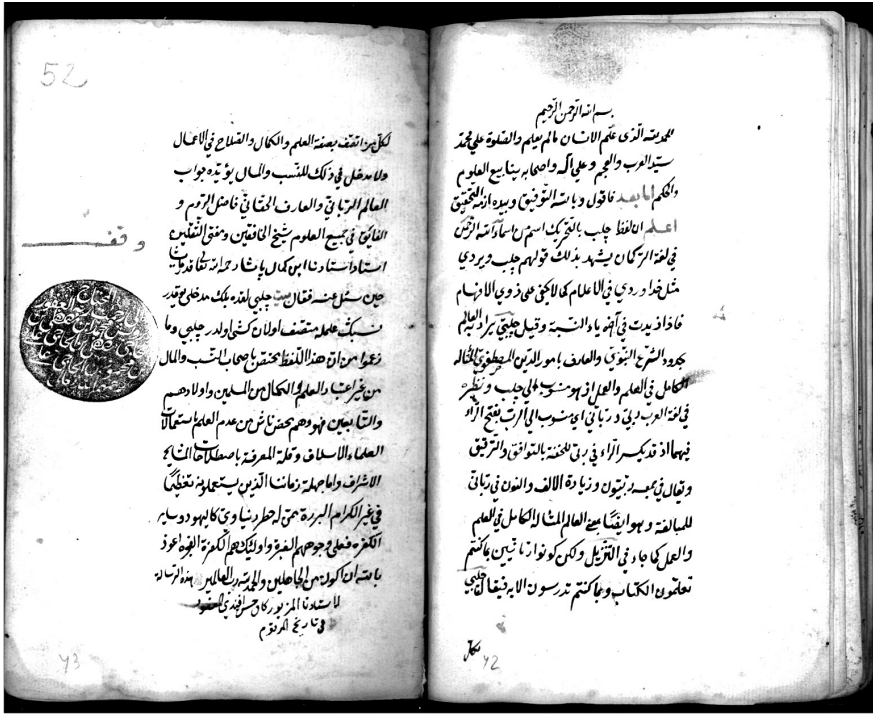 بسم الله الرحمن الرحيم
الحمد لله الذى علم الانسان مالم يعلم والصلوة على محمد
سيد العرب والعجم وعلى آله واصحابه ينابيع العلوم
والحكم اما بعد فاقول وبالله التوفيق وبيده ازمة التحقيق
اعلم ان لفظ چلب بالتحريك اسم من اسماء الله الرحمن
فى لغة التركمان يشهد بذلك قولهم چلب ويردى
مثل خداوردى فى الاعلام كما لا يخفى على ذوى الافهام
فاذا زيدت فى آخره ياء النسبة وقيل چلبى يراد به العالم
بحدود الشرع النبوى والعارف بامور الدين المصطفوى
الكامل فى العلم والعمل اذ هو منسوب الى چلب ونظيره
فى لغة العرب ربى وربانى اى منسوب الى الرب بفتح الراء
فيهما اذ قد يكسر الراء فى ربى للخفة بالتوافق والترقيق
ويقال فى جمعه ربيون وزيادة الالف والنون فى ربانى
للمبالغة وهو ايضا بمعنى العالم الكامل فى العلم
والعمل كما جاء فى التنزيل ولكن كونوا ربانيين بما كنتم
تعلمون الكتاب وبما كنتم تدرسون الآية فيقال چلبى
لكل
42
52
لكل من اتصف بصفة العلم والكمال والصلاح فى الاعمال
ولا مدخل فى ذلك للنسب والمال يؤيده جواب
العالم الربانى والعارف الحقانى فاضل الروم و
الفايق فى جميع العلوم شيخ الخافقين ومفتى الثقلين
استاد استادنا ابن كمال پاشا رحمه الله تعالى
حين سئل عنه فقال چلبى لغده بك مدخلى يوقدر
نسبت علمله متصف اولان كشى اولدر چلبى وما
زعموا من ان هذا اللفظ يختص باصحاب النسب والمال
من غير اعتبار العلم والكمال من المسلمين واولادهم
والتابعين فهو وهم محض ناش من عدم العلم باستعمالات
العلماء الاسلاف وقلة المعرفة باصطلاحات المشايخ
الاشراف واما جهلة زماننا الذين يستعملونه تعظيما
فى غير الكرام البررة ممن له خطر دنياوى كاليهود وساير
الكفرة فعلى وجوههم الغبرة واولئك هم الكفرة الفجرة اعوذ
بالله ان اكون من الجاهلين والحمد لله رب العالمين هذه الرسالة
لاستادنا المزبور حسن افندى
فى تاريخ المرقوم
وقف
43